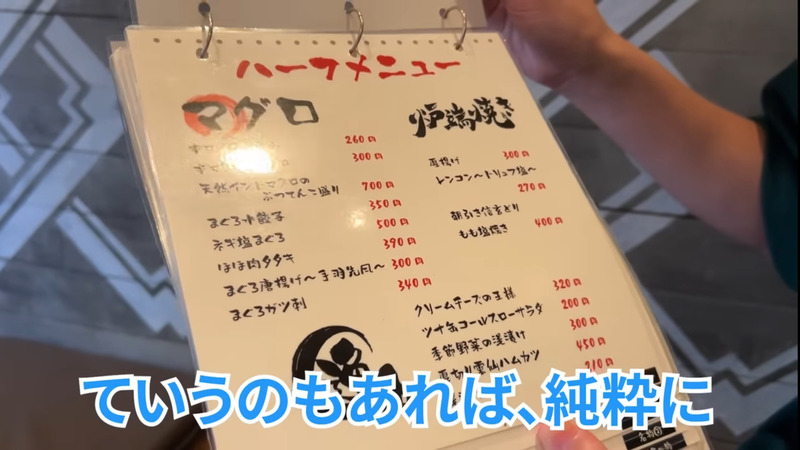 ハーフメニュー
マグロ
260円
300円
天然インドマグロの
ぶつてんこ盛り 700円
350円
まぐろ水餃子 500円
ネギ塩まぐろ 390円
ほほ肉タタキ 300円
まぐろ唐揚げ〜手羽先風〜 340円
まぐろガツ刺
炉端焼き
厚揚げ 300円
レンコン〜トリュフ塩〜
270円
朝引き信玄どり
もも塩焼き 400円
クリームチーズの王様 320円
ツナ缶コールスローサラダ 200円
季節野菜の浅漬け 300円
厚切り雲仙ハムカツ 450円
210円
ていうのもあれば、純粋に